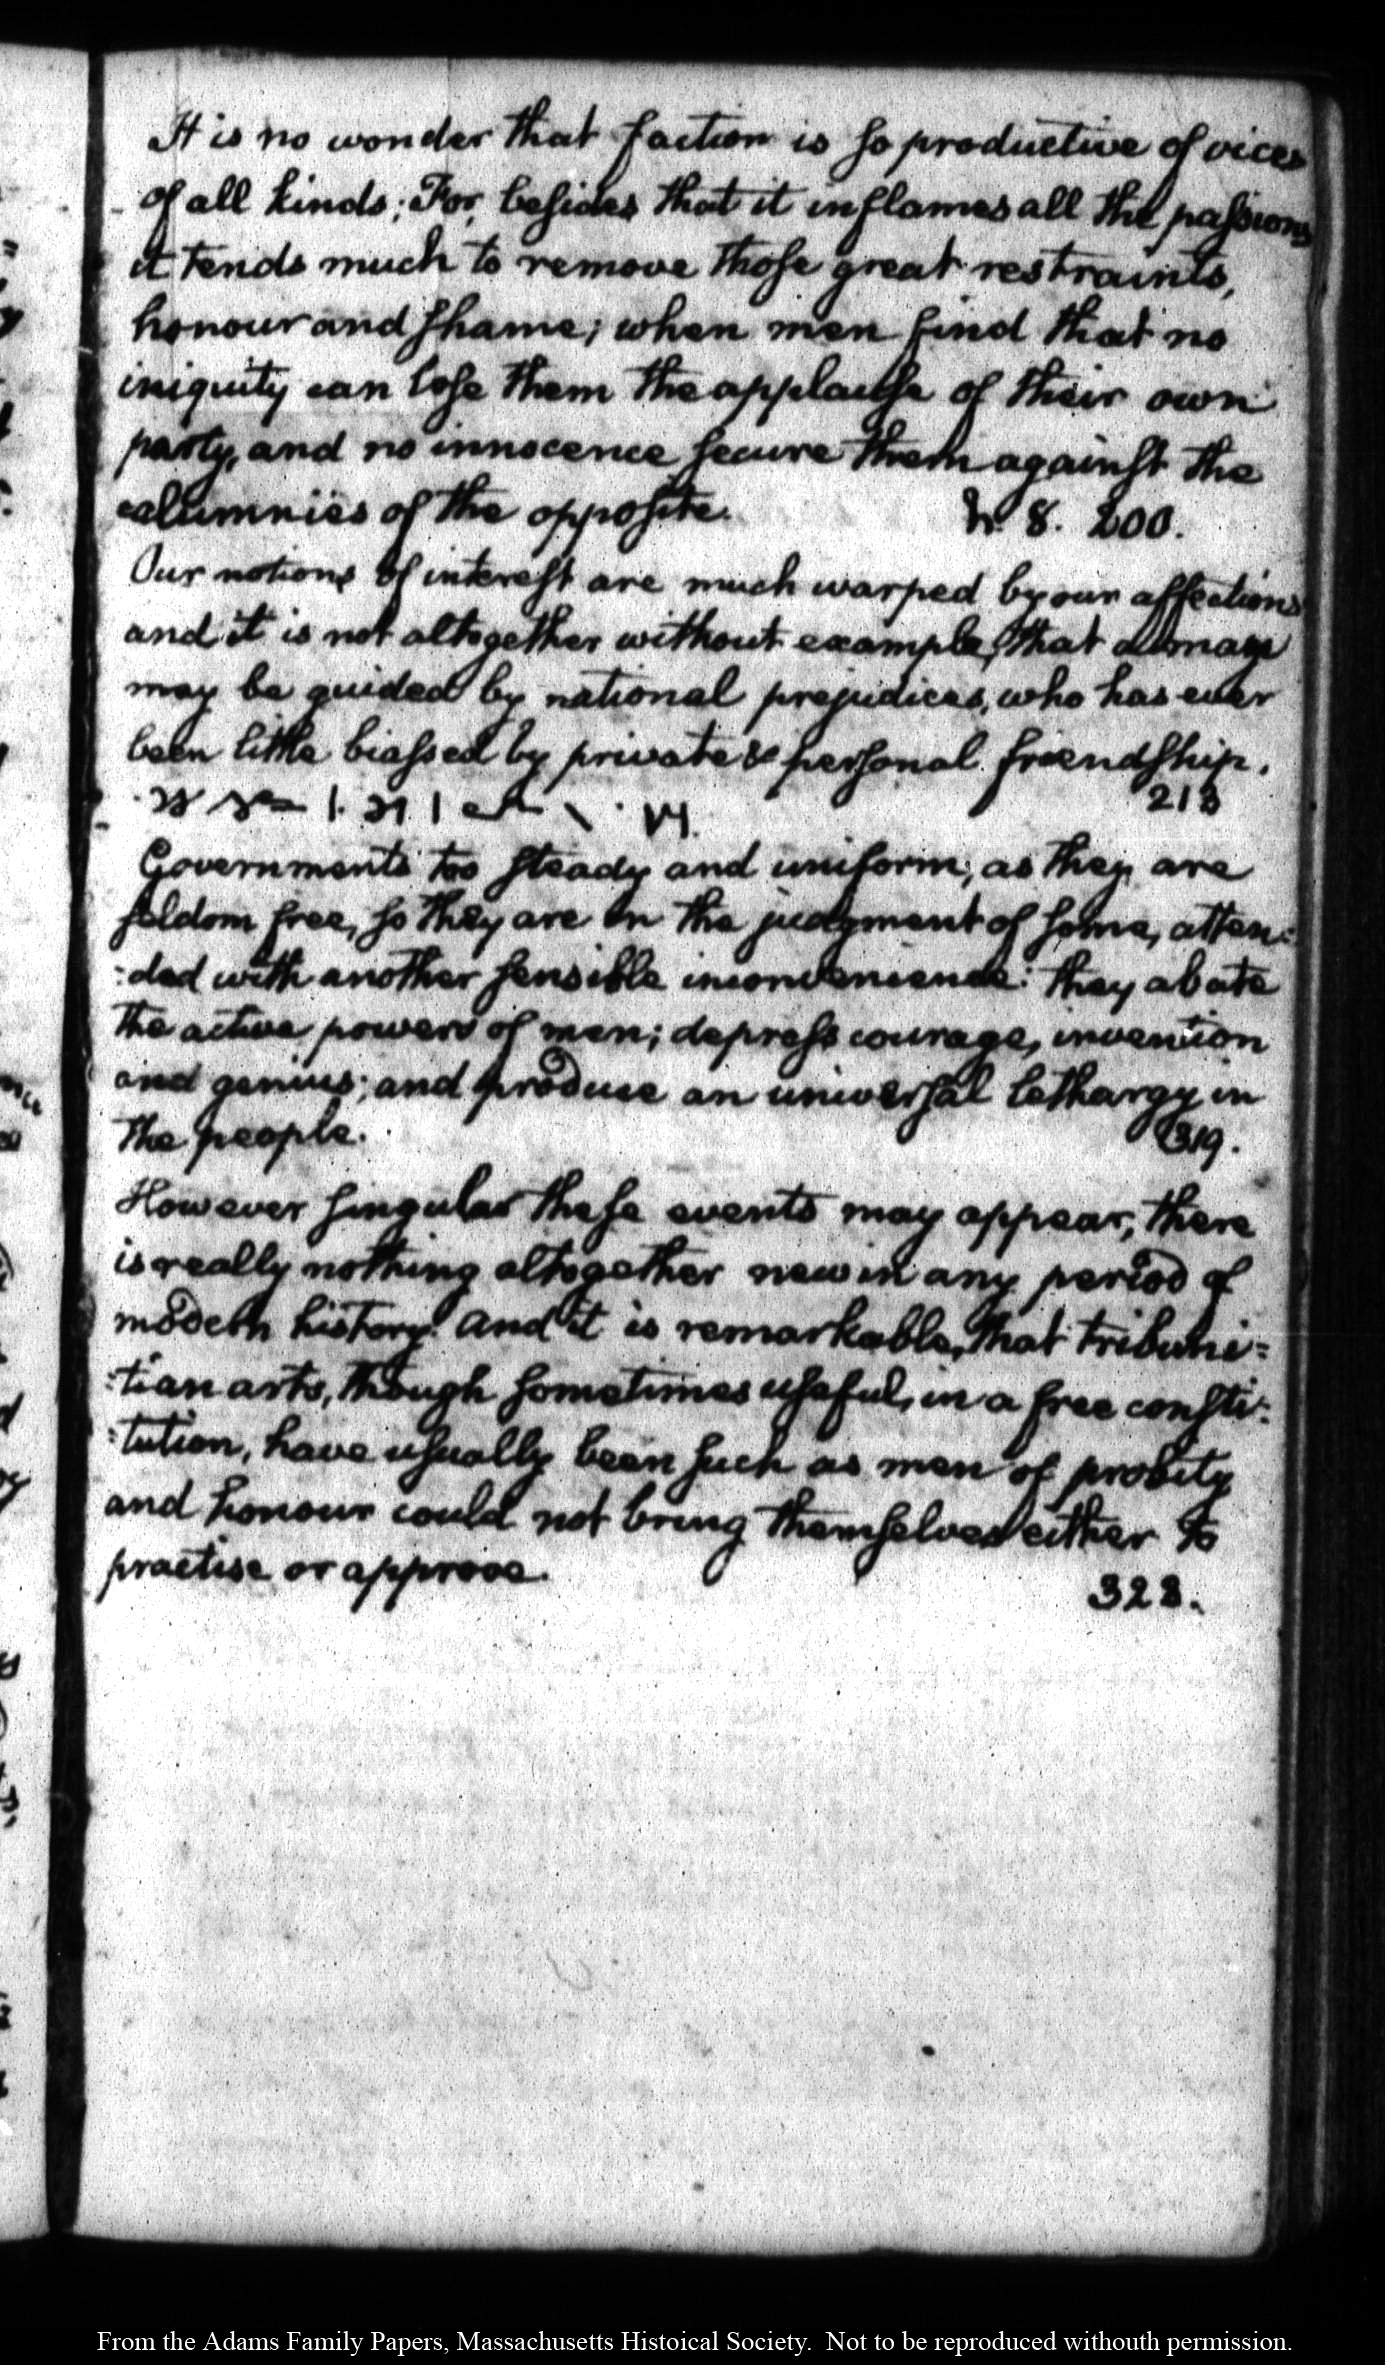 It is no wonder that faction is so productive of vices
of all kinds; For, besides that it inflames all the passions
it tends much to remove those great restraints,
honour and shame; when men find that no
iniquity can lose them the applause of their own
party, and no innocence secure them against the
calumnies of the opposite. h. 8. 200.
Our notions of interest are much warped by our affections
and it is not altogether without example, that a man
may be guided by national prejudices, who has ever
been little biassed by private & personal friendship.
213
Governments too steady and uniform; as they are
seldom free, so they are in the judgment of some, atten=
:ded with another sensible inconvenience: they abate
the active powers of men; depress courage, invention
and genius; and produce an universal lethargy in
the people. 319.
However singular these events may appear, there
is really nothing altogether new in any period of
modern history. And it is remarkable, that tribuni=
:tian arts, though sometimes useful, in a free consti:
:tution, have usually been such as men of probity
and honour could not bring themselves either to
practise or approve.
323.
From the Adams Family Papers, Massachusetts Histoical Society. Not to be reproduced withouth permission.